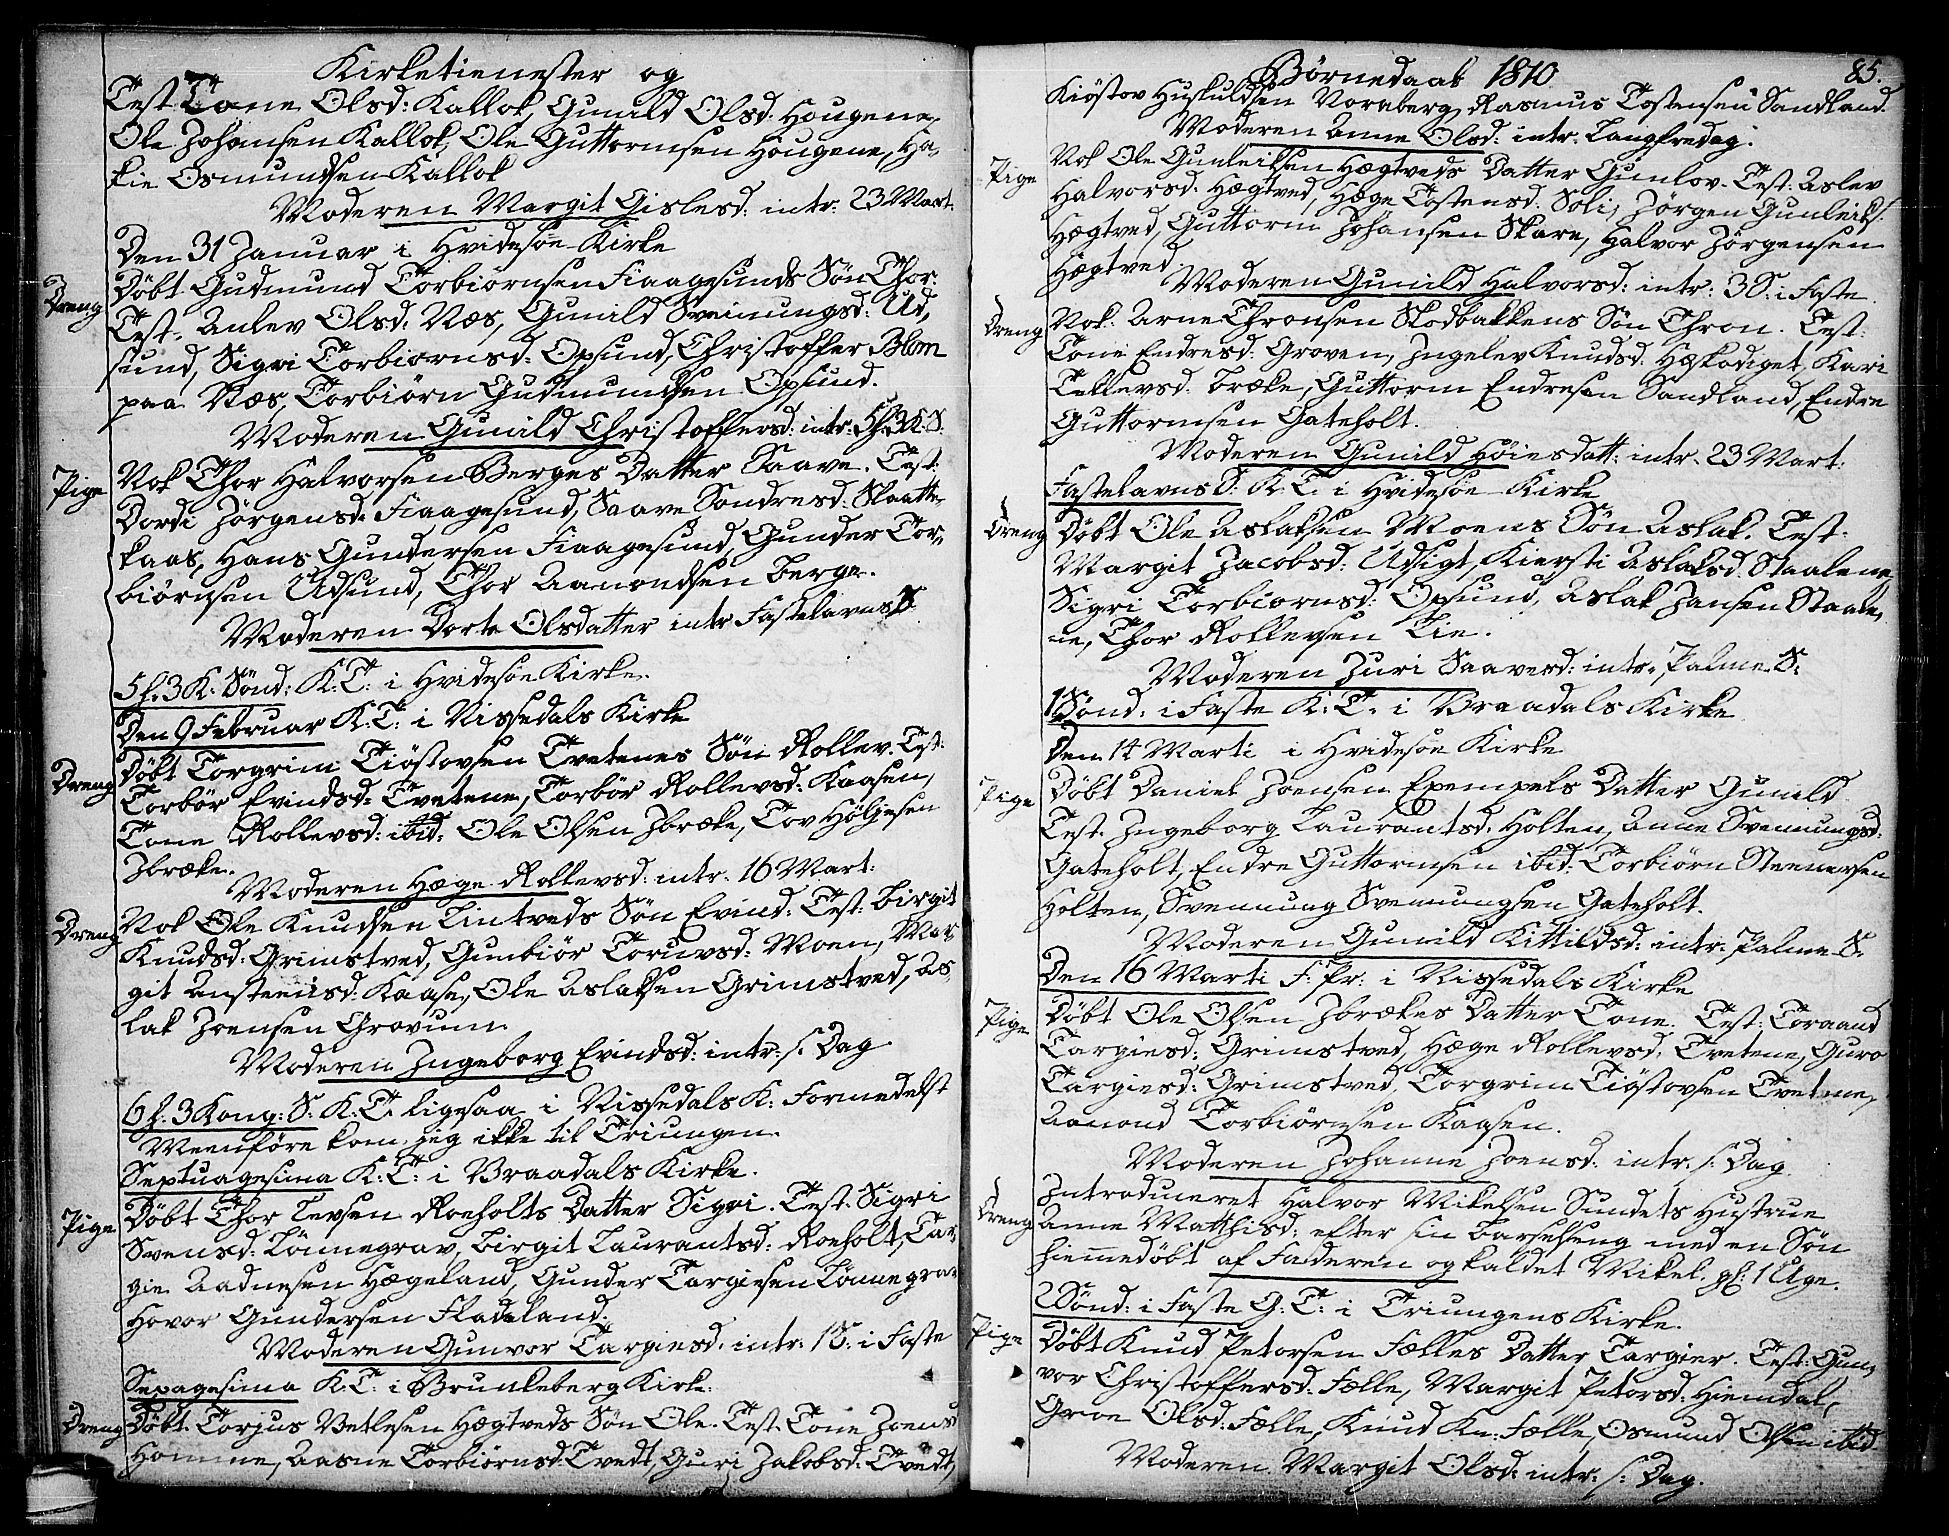 Kirketienester og
Test: Tone Olsd: Kallok, Gunild Olsd: Hougene,
Ole Johansen Kallok, Ole Guttormsen Hougene, Ha,
kie Osmundsen Kallok
Moderen Margit Gislesd: intr: 23 Mart.
Den 31 Januar i Hvidesøe Kirke
Dreng
Døbt Gudmund Torbiørnsen Fiaagesunds Søn Thor:
Test: Anlev Olsd: Næs, Gunild Svenungsd: Ud,
sund, Sigri Torbiørnsd: Opsund, Christoffer Blom
paa Næs, Torbiørn Gudmundsen Opsund.
Moderen Gunild Christoffersd: intr: 5 f. 3 K. S.
Pige
Nok Thor Halvorsen Berges Datter Saave. Test:
Dordi Jørgensd: Fiaagesund, Saave Sondresd: Skaatte,
kaas, Hans Gundersen Fiaagesund, Gunder Tor,
biørnsen Udsund, Thor Aamondsen Berge.
Moderen Dorte Olsdatter intr. Fastelavns S:
5 f. 3 K: Sønd: K: T: i Hvidesøe Kirke.
Den 9 Februar K: T: i Nissedals Kirke
Dreng
Døbt Torgrim Tiøstovsen Tvetenes Søn Rollev. Test:
Torbør Evindsd: Tvetene, Torbør Rollevsd: Kaasen,
Tone Rollevsd: ibid: Ole Olsen Jbræke, Tov Høljesen
Jbræke.
Moderen Hæge Rollevsd: intr: 16 Mart:
Dreng
Nok Ole Knudsen Lintveds Søn Evind: Test: Birgit
Knudsd: Grimstved, Gunbiør Toruvsd: Moen, Mar,
git Ansteensd: Kaase, Ole Aslaksen Grimstved, As,
lak Joensen Grovum.
Moderen Ingeborg Evindsd: intr: s: Dag
6 f. 3 Kong: S: K: T: ligesaa i Nissedals K: Formedelst
Meenføre kom jeg ikke til Triungen.
Septuagesima K: T: i Braadals Kirke.
Pige
Døbt Thor Levsen Roeholts Datter Sigri. Test: Sigri
Svensd: Lønnegrav, Birgit Laurantsd: Roeholt, Tar,
gie Aadnesen Hægeland, Gunder Targiesen Lønnegrav
Hovor Gundersen Fladeland.
Moderen Gunvor Targiesd: intr: 1 S: i Faste
Sexagesima K: T: i Brunkeberg Kirke:
Dreng
Døbt Torjus Vetlesen Hægtveds Søn Ole. Test: Tone Joensd
Homme, Aasne Torbiørnsd: Tvedt, Guri Jakobsd: Tvedt,
Børnedaab 1810
85.
Kiøstov Huskuldsen Noraberg, Rasmus Tostensen Sandland.
Moderen Anne Olsd: intr: Langfredag.
Pige
Nok Ole Gunleiksen Hægtveds Datter Gunlov. Test: Aslev
Halvorsd: Hægtved, Hæge Tostensd: Soli, Jørgen Gunleiks:
Hægtved, Guttorm Johansen Skare, Halvor Jørgensen
Hægtved.
Moderen Gunild Halvorsd: intr: 3 S: i Faste.
Dreng
Nok: Arne Thronsen Skodbakkens Søn Thron. Test:
Tone Endresd: Groven, Ingelev Knudsd: Hæskodiget, Kari
Tellevsd: Bræke, Guttorm Endresen Sandland, Endre
Guttormsen Gateholt.
Moderen Gunild Høiesdatt: intr: 23 Mart:
Fastelavns S: K: T: i Hvidesøe Kirke
Dreng
Døbt Ole Aslaksen Moens Søn Aslak. Test:
Margit Jacobsd: Udsigt, Kiersti Aslaksd: Staalene,
Sigri Torbiørnsd: Opsund, Aslak Jansen Staale,
ne, Thor Rollevsen Lie.
Moderen Juri Saavesd: intr: Palme S:
1 Sønd: i Faste K: T: i Braadals Kirke
Den 14 Marti i Hvidesøe Kirke
Pige
Døbt Daniel Joensen Exempels Datter Gunild
Test: Ingeborg Laurantsd: Holten, Anne Svennungsd:
Gateholt, Endre Guttormsen ibid: Torbiørn Stenersen
Holten, Svennung Svennungsen Gateholt.
Moderen Gunild Kittilsd: intr: Palme S:
Den 16 Marti F: Pr: i Nissedals Kirke
Pige
Døbt Ole Olsen Jbrækes Datter Tone. Test: Toraand
Targiesd: Grimstved, Hæge Rollevsd: Tvetene, Guro
Targiesd: Grimstved, Torgrim Tiøstovsen Tvetene,
Aamond Torbiørnsen Kaasen.
Moderen Johanne Joensd: intr: s: Dag.
Dreng
Introduceret Halvor Mikelsen Sundets Hustrue
Anne Matthisd: efter sin Barselseng med en Søn
hiemmedøbt af Faderen og kaldet Mikel. gl: 1 Uge.
2 Sønd: i Faste G: T: i Triungens Kirke.
Pige
Døbt Knud Petersen Fælles Datter Targier. Test: Gun,
vor Christoffersd: Fælle, Margit Petersd: Hiemdal,
Groe Olsd: Fælle, Knud Kn: Fælle, Osmund Olsen ibid.
Moderen Margit Olsd: intr: s: Dag.